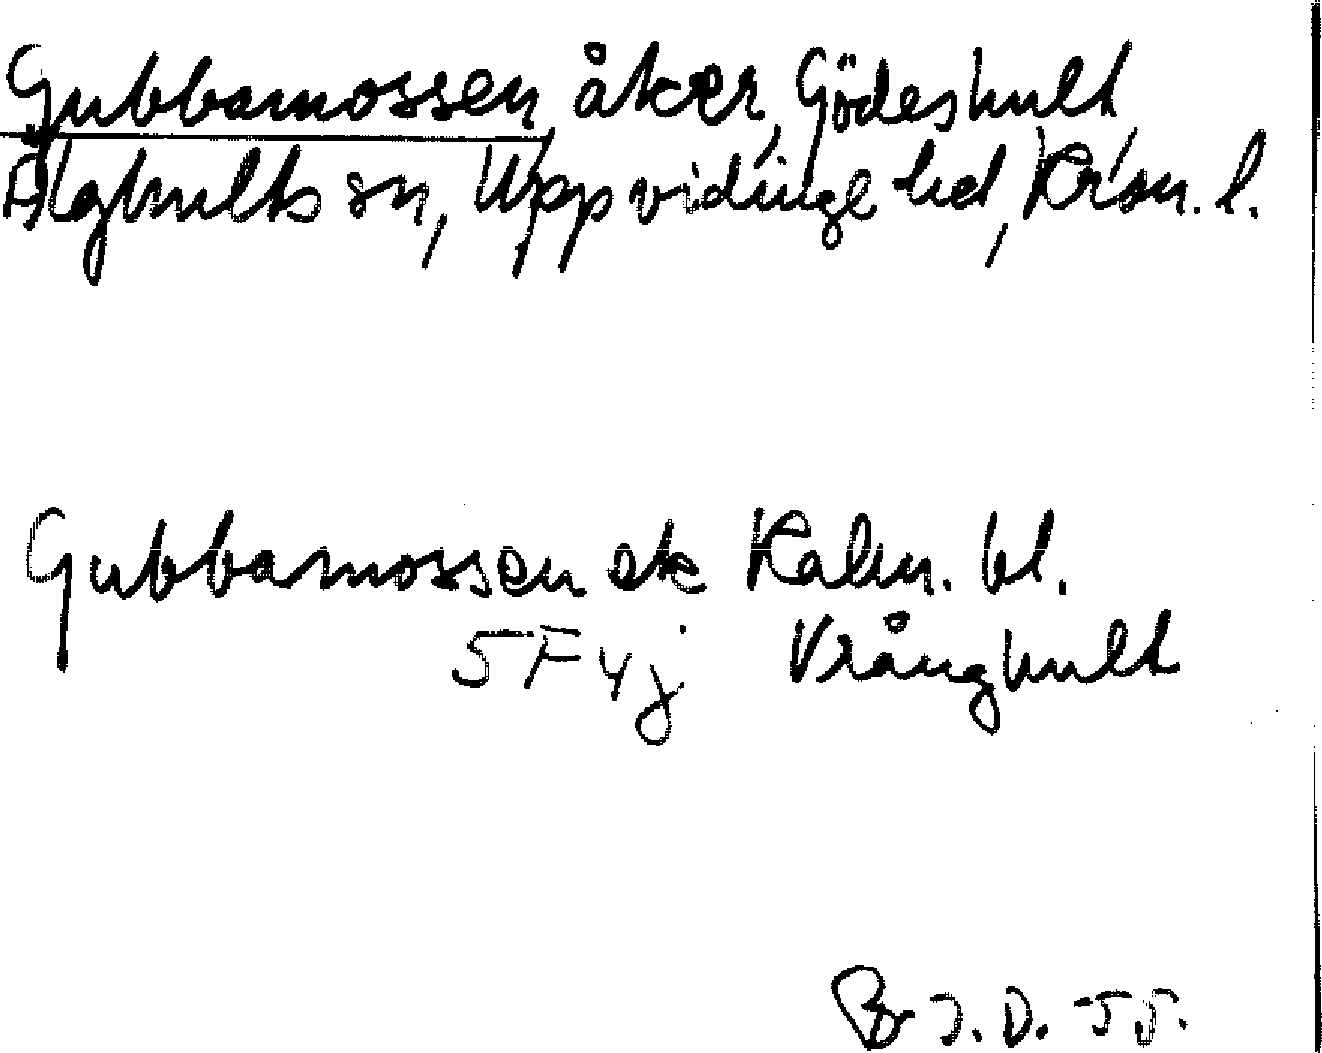 Gubbamossen, åker, Gödeshult,
Älghults sn, Uppvidinge hd, Kron. l.
Gubbamossen ek Kaln. bl.
5F4j Vrånghult
J.D. -55.